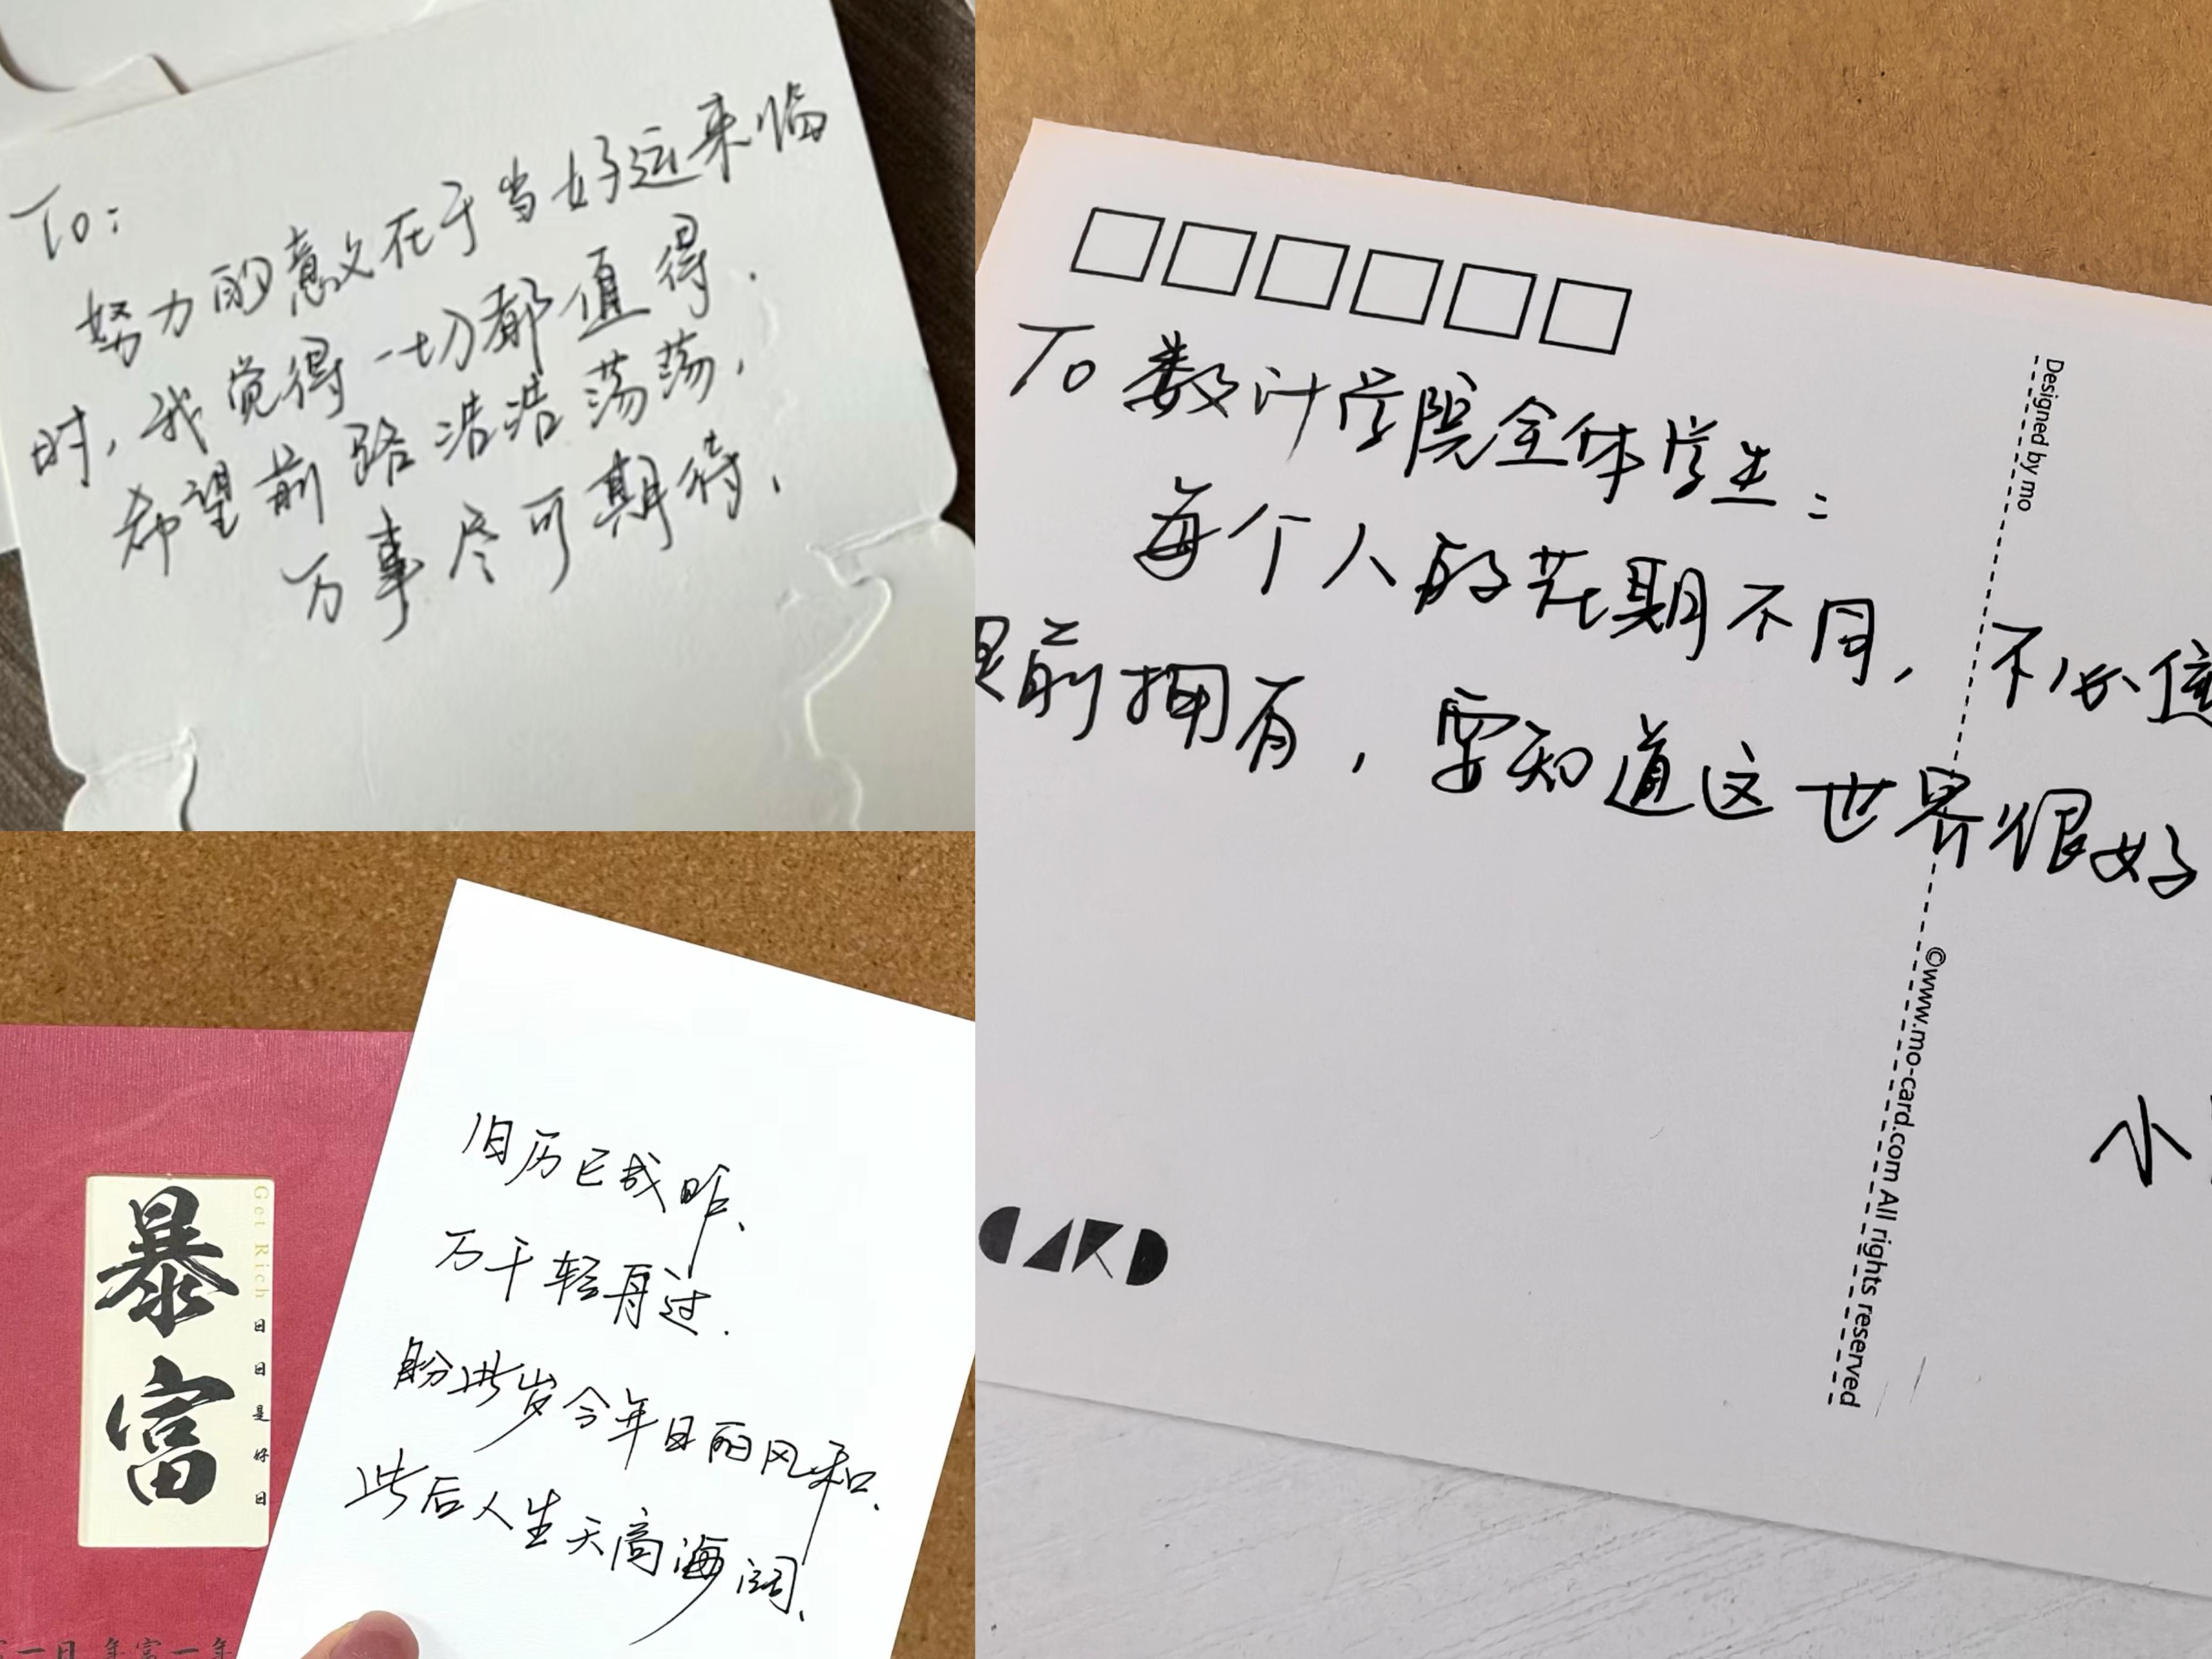 To:
努力的意义在于当好运来临
时,我觉得一切都值得.
希望前路浩浩荡荡,
万事尽可期待.
To 数计学院全体学生:
每个人的花期不同,不必
前拥有,要知道这世界很好
小
Designed by mo
©www.mo-card.com All rights reserved
CARD
旧历已成昨、
万千轻舟过.
盼此岁今年日丽风和、
此后人生天高海阔、
暴富
Get Rich 日日是好日
一日 年富一年